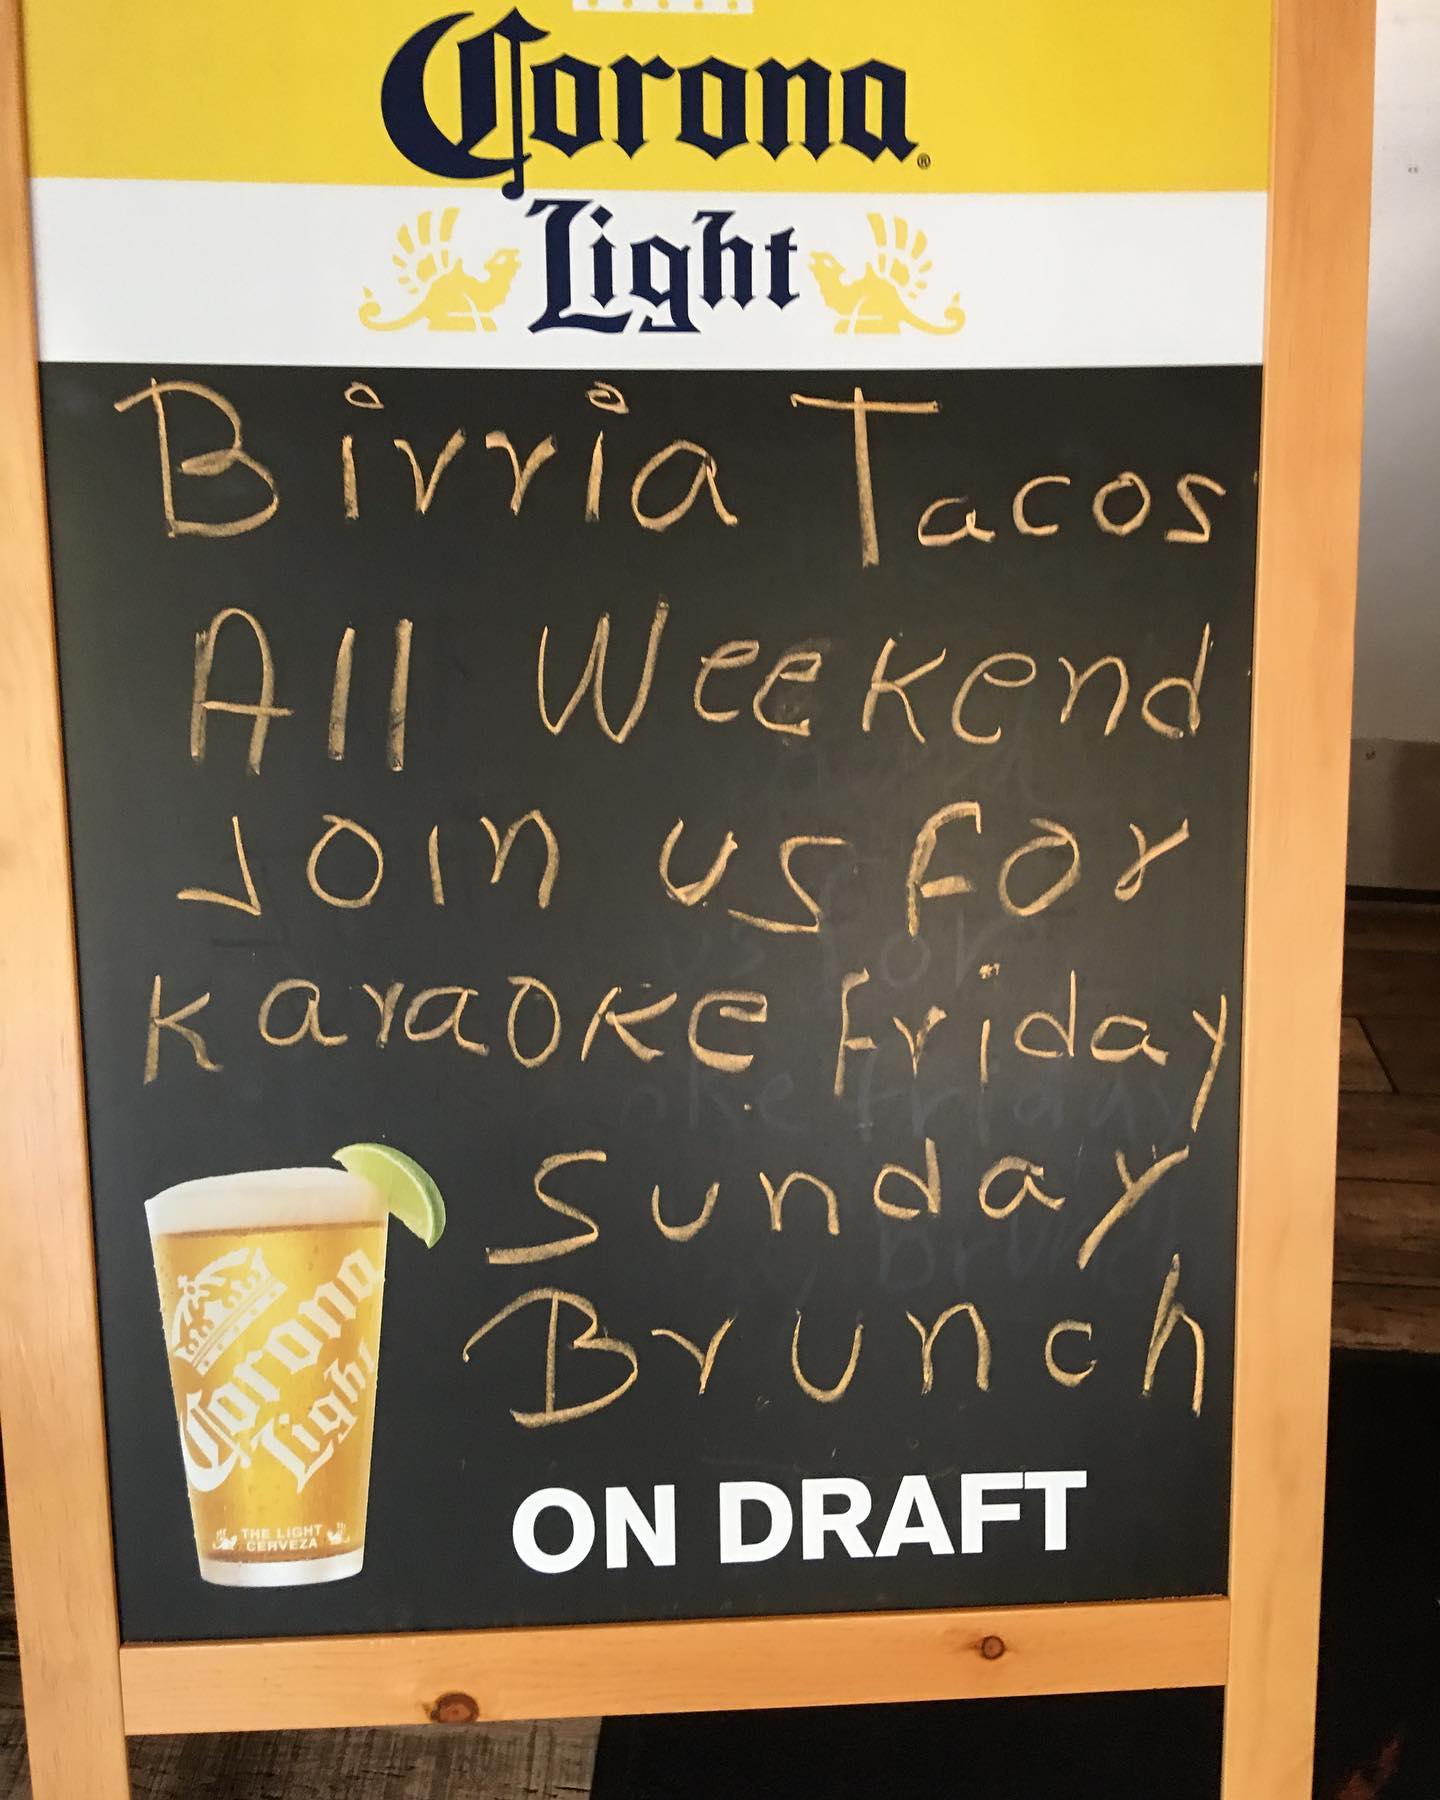 Corona®
Light
Birria Tacos
All Weekend
Join us For
Karaoke Friday
Sunday
Brunch
Corona
Light
THE LIGHT
CERVEZA
ON DRAFT